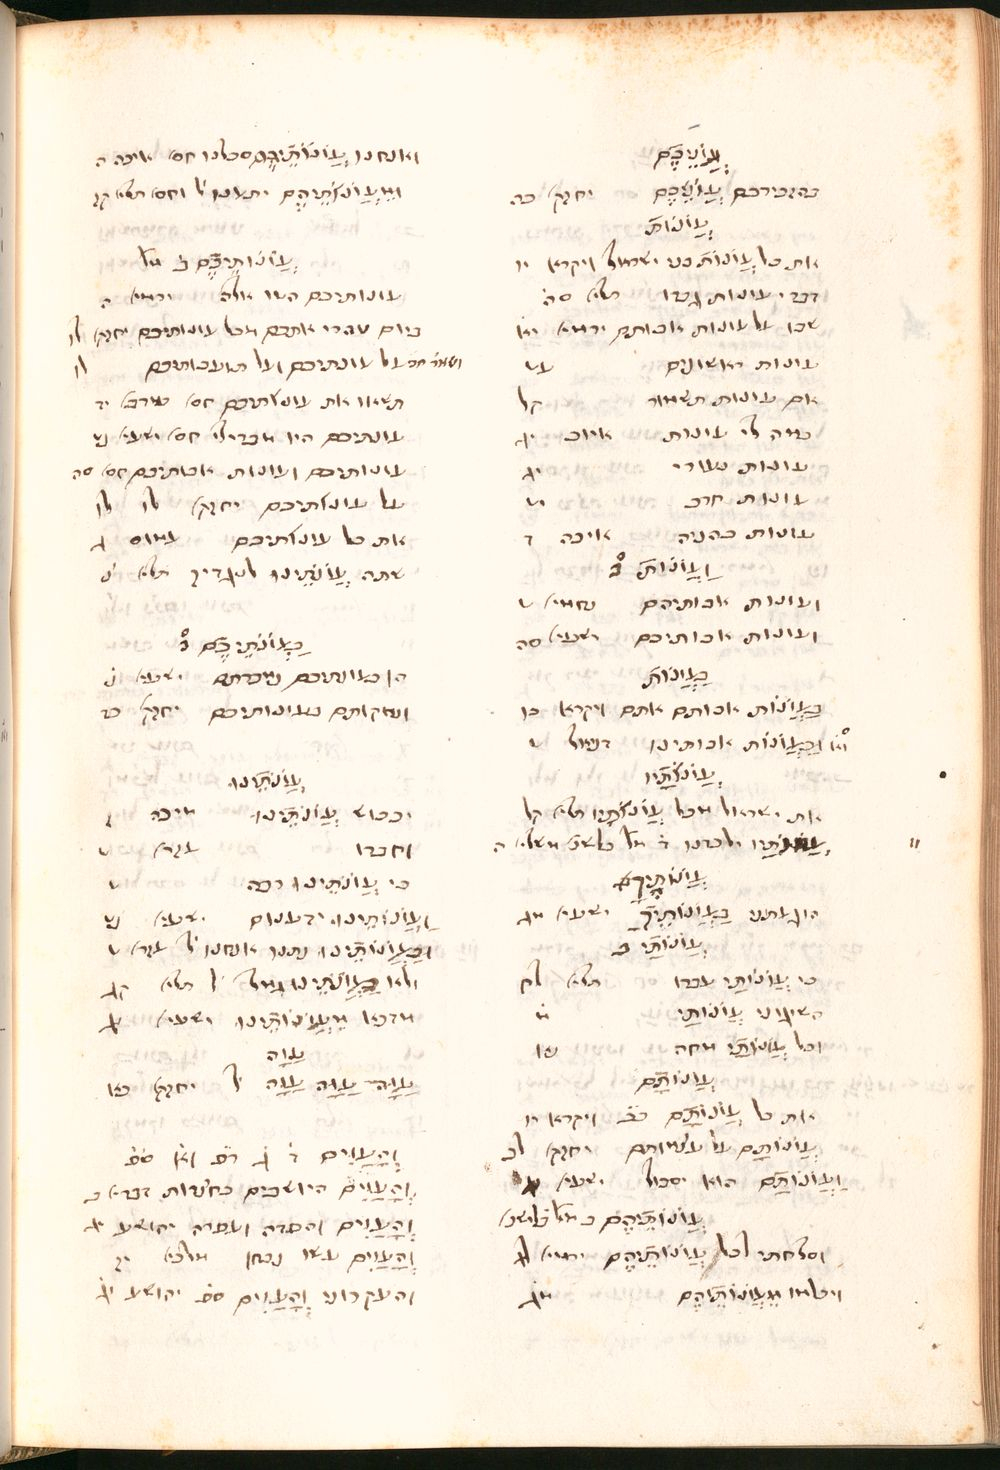 עֲוֹנֵיכֶם
בהזכירכם עֲוֹנֵכֶם יחזק׳ כה
עֲוֹנוֹת
את כל עֲוֹנוֹת בני ישראל ויקרא יו
דברי עונות גברו תלי׳ סה
שבו על עונות אבותם ירמי׳ יא
עונות ראשונים עט
אם עונות תשמור קל
כמה לי עונות איוב יג
עונות נעורי יג
עונות חרב יט
עונות כהניה איכה ד
וַעֲוֹנוֹת ב̊
ועונות אבותיהם נחמי׳ ט
ועונות אבותיכם ישעי׳ סה
בַּעֲוֹנוֹת
בַּעֲוֹנוֹת אבותם אתם ויקרא כו
וּבַעֲוֹנוֹת אבותינו דניאל ט
עֲוֹנוֹתָיו
את ישראל מכל עֲוֹנוֹתָיו תלי׳ קל
ילכדנו משלי׳ ה
עֲוֹנוֹתָיִךְ
הוגעתני בַּעֲוֹנוֹתֶיךָ ישעי׳ מג
עֲוֹנוֹתַי ב
כי עֲוֹנוֹתַי עברו תלי׳ לח
השיגוני עֲוֹנוֹתַי מ
וכל עֲוֹנוֹתַי מחה נא
עֲוֹנוֹתָם
את כל עֲוֹנוֹתָם ויקרא יו
עֲוֹנוֹתָם על עצמותם יחזק׳ לב
וַעֲוֹנוֹתָם הוא יסבול ישעי׳
עֲוֹנוֹתֵיהֶם
וסלחתי לכל עֲוֹנוֹתֵיהֶם ירמי׳ לג
ויכלמו מֵעֲוֹנוֹתֵיהֶם מג
ואנחנו עֲוֹנוֹתֵיהֶם סבלנו חס׳ איכה ה
וּמֵעֲוֹנוֹתֵיהֶם יתענו ל׳ וחס׳ תלי׳ קז
עֲוֹנוֹתֵיכֶם
עונותיכם הטו אלה ירמי׳ ה
ביום טהרי אתכם מכל עונותיכם יחזק׳ לו
על עונתיכם ועל תועבותיכם לו
תשאו את עונתיכם חס׳ במדבר יד
עונתיכם היו מבדילי׳ חס׳ ישעי׳ נט
עונותיכם ועונות אבותיכם חס׳ סה
על עונתיכם יחזק׳ לו
את כל עונתיכם עמוס ג
שתה עֲוֹנֹתֵינוּ לנגדיך תלי׳ צ
בַּעֲוֹנֹתֵיכֶם ב̊
הן בעונתיכם נמכרתם ישעי׳ נ
ונמקותם בעונותיכם יחזק׳ כד
עֲוֹנֹתֵינוּ
יכבוש עֲוֹנֹתֵינוּ מיכה ז
עזרא ט
כי עֲוֹנֹתֵינוּ רבה ט
וַעֲוֹנוֹתֵינוּ ידענום ישעי׳ נט
וּבַעֲוֹנוֹתֵינוּ נתנו אנחנו ל׳ עזרא ט
ולא כַעֲוֹנֹתֵינוּ גמל ל׳ תלי׳ קג
מדכא מֵעֲוֹנוֹתֵינוּ ישעי׳ נג
עַוָּה
עַוָּה עַוָּה עַוָּה ל׳ יחזק׳ כא
וְהָעַוִּים
וְהָעַוִּים היושבים בחצרות דברי׳ ב
וְהָעַוִּים והפרה ועפרה יהושע יג
וְהָעַוִּים עשו נבחז מלכי׳ יז
והעקרוני וְהָעַוִּים ספ׳ יהושע יג